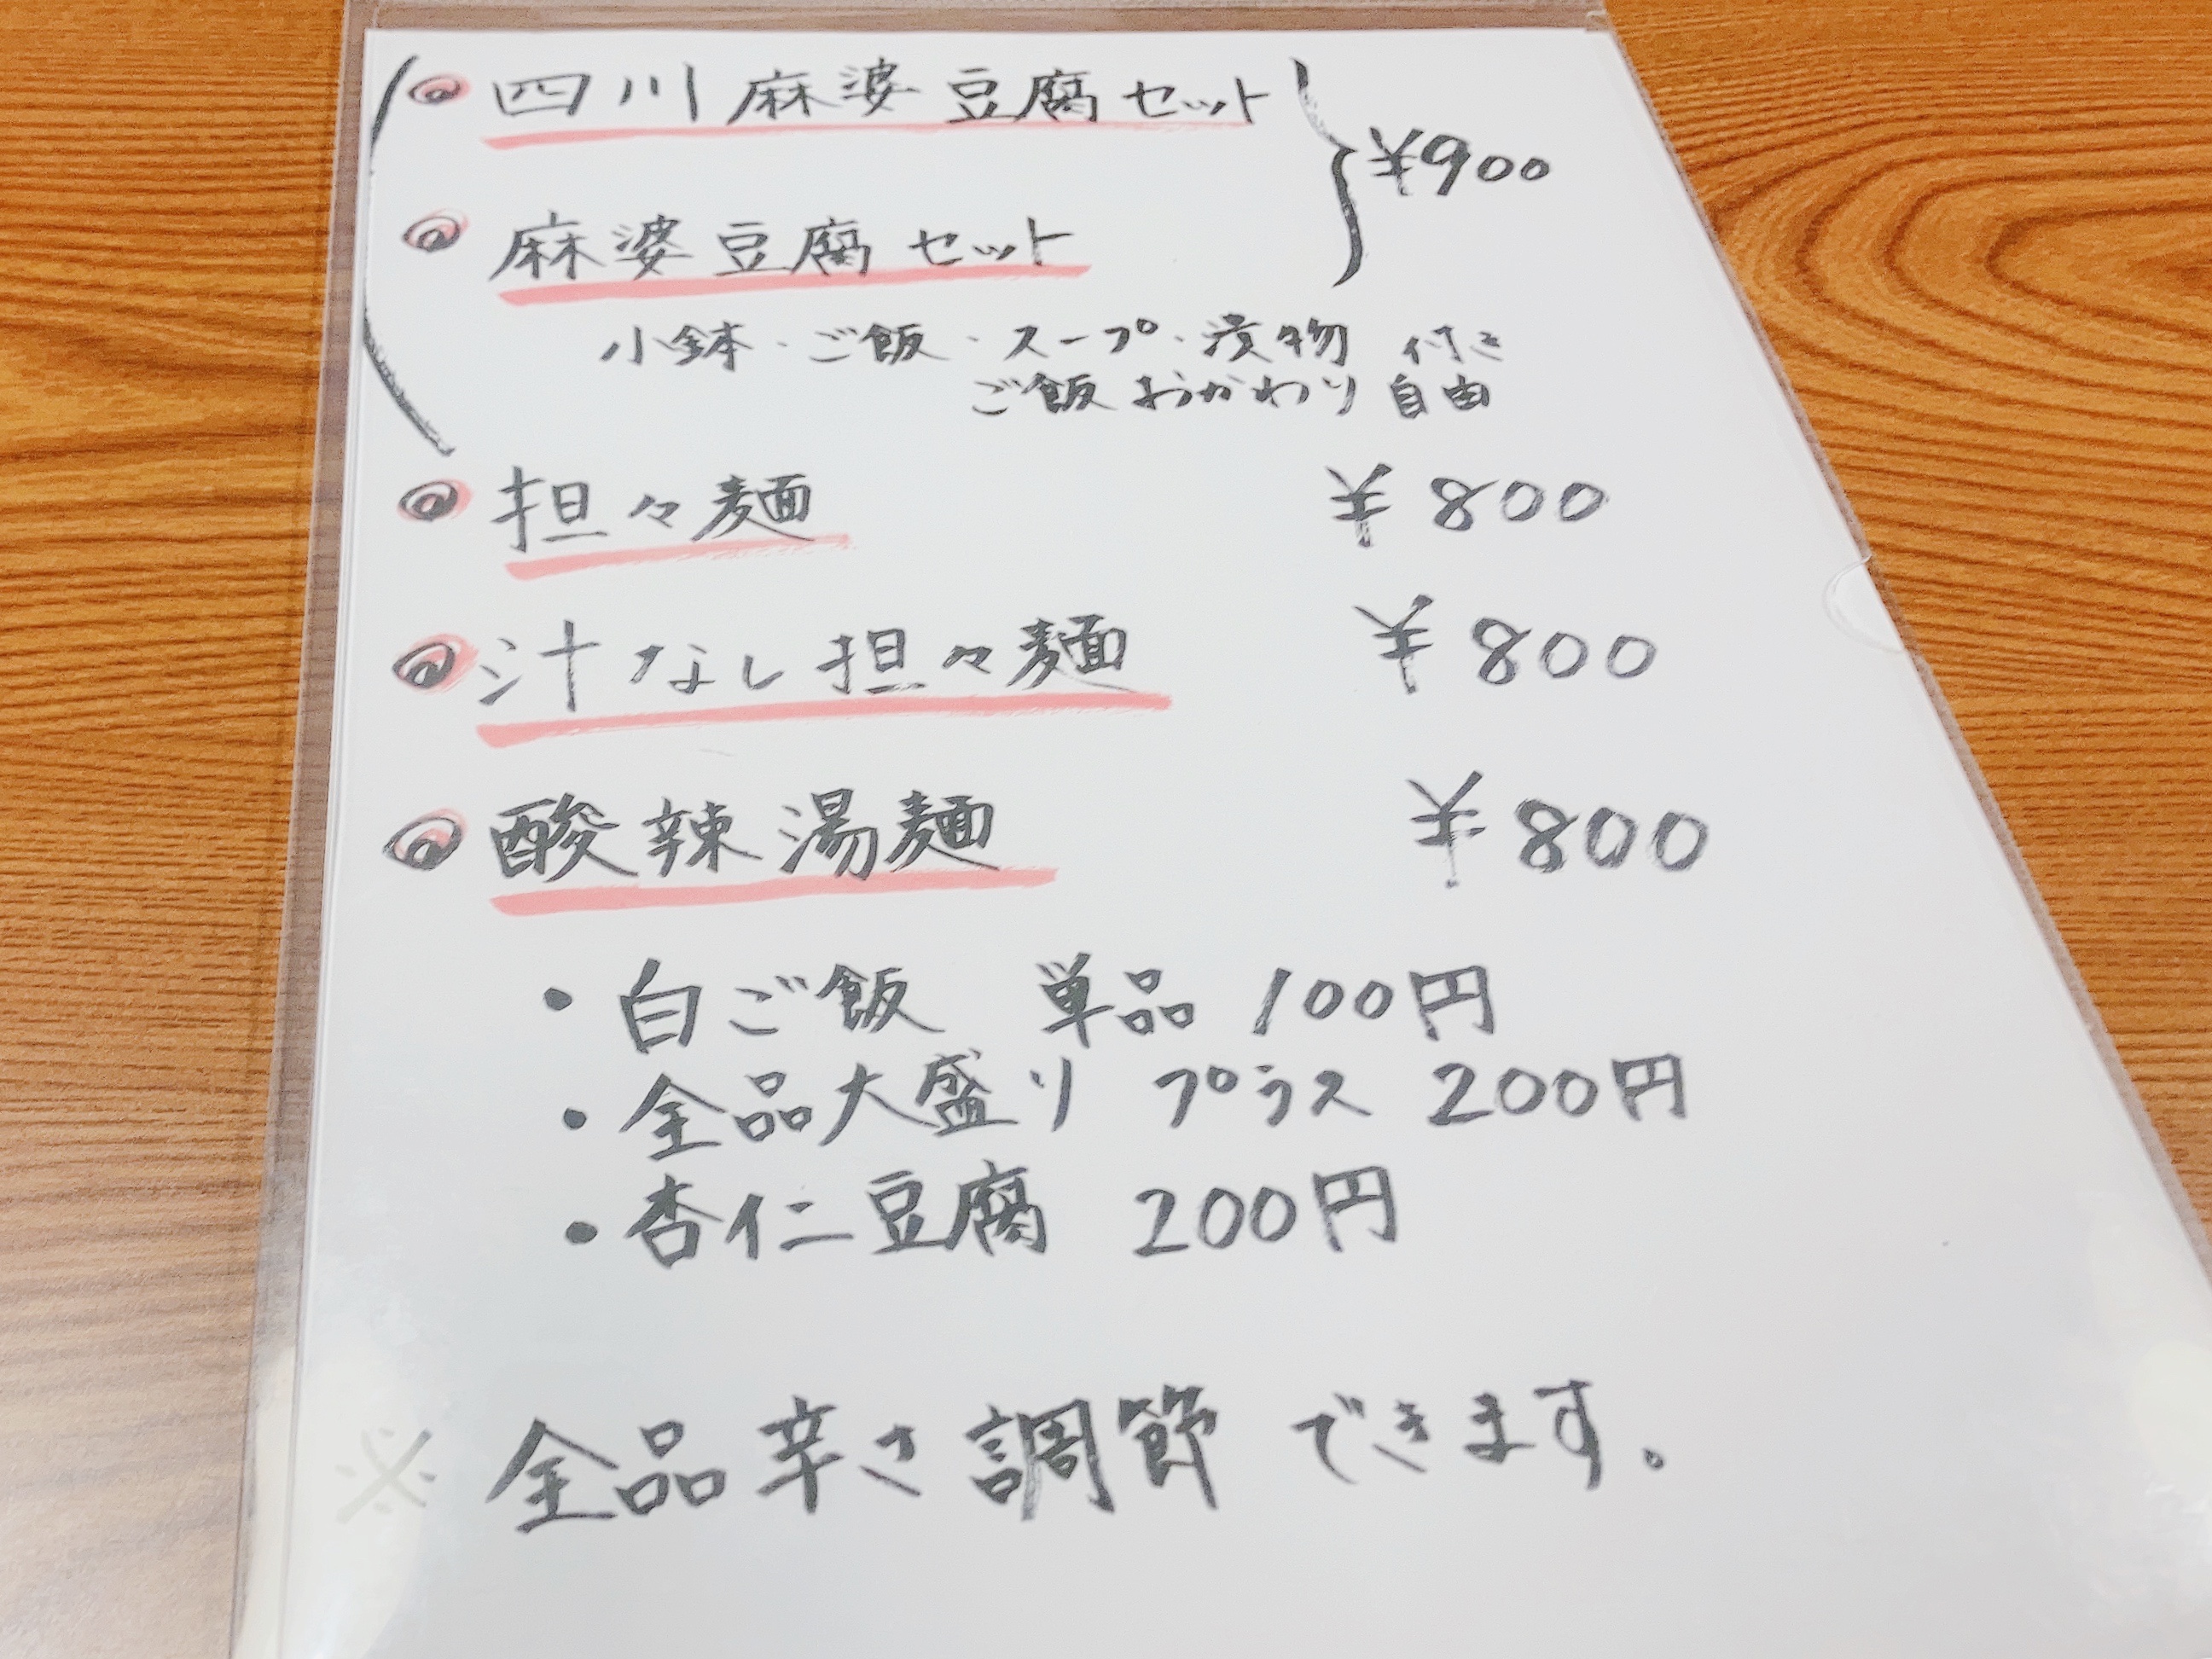 ◎ 四川麻婆豆腐セット
¥900
◎ 麻婆豆腐セット
小鉢・ご飯・スープ・漬物 付き
ご飯おかわり自由
◎ 担々麺 ¥800
◎ 汁なし担々麺 ¥800
◎ 酸辣湯麺 ¥800
・白ご飯 単品 100円
・全品大盛り プラス 200円
・杏仁豆腐 200円
※ 全品辛さ調節できます。